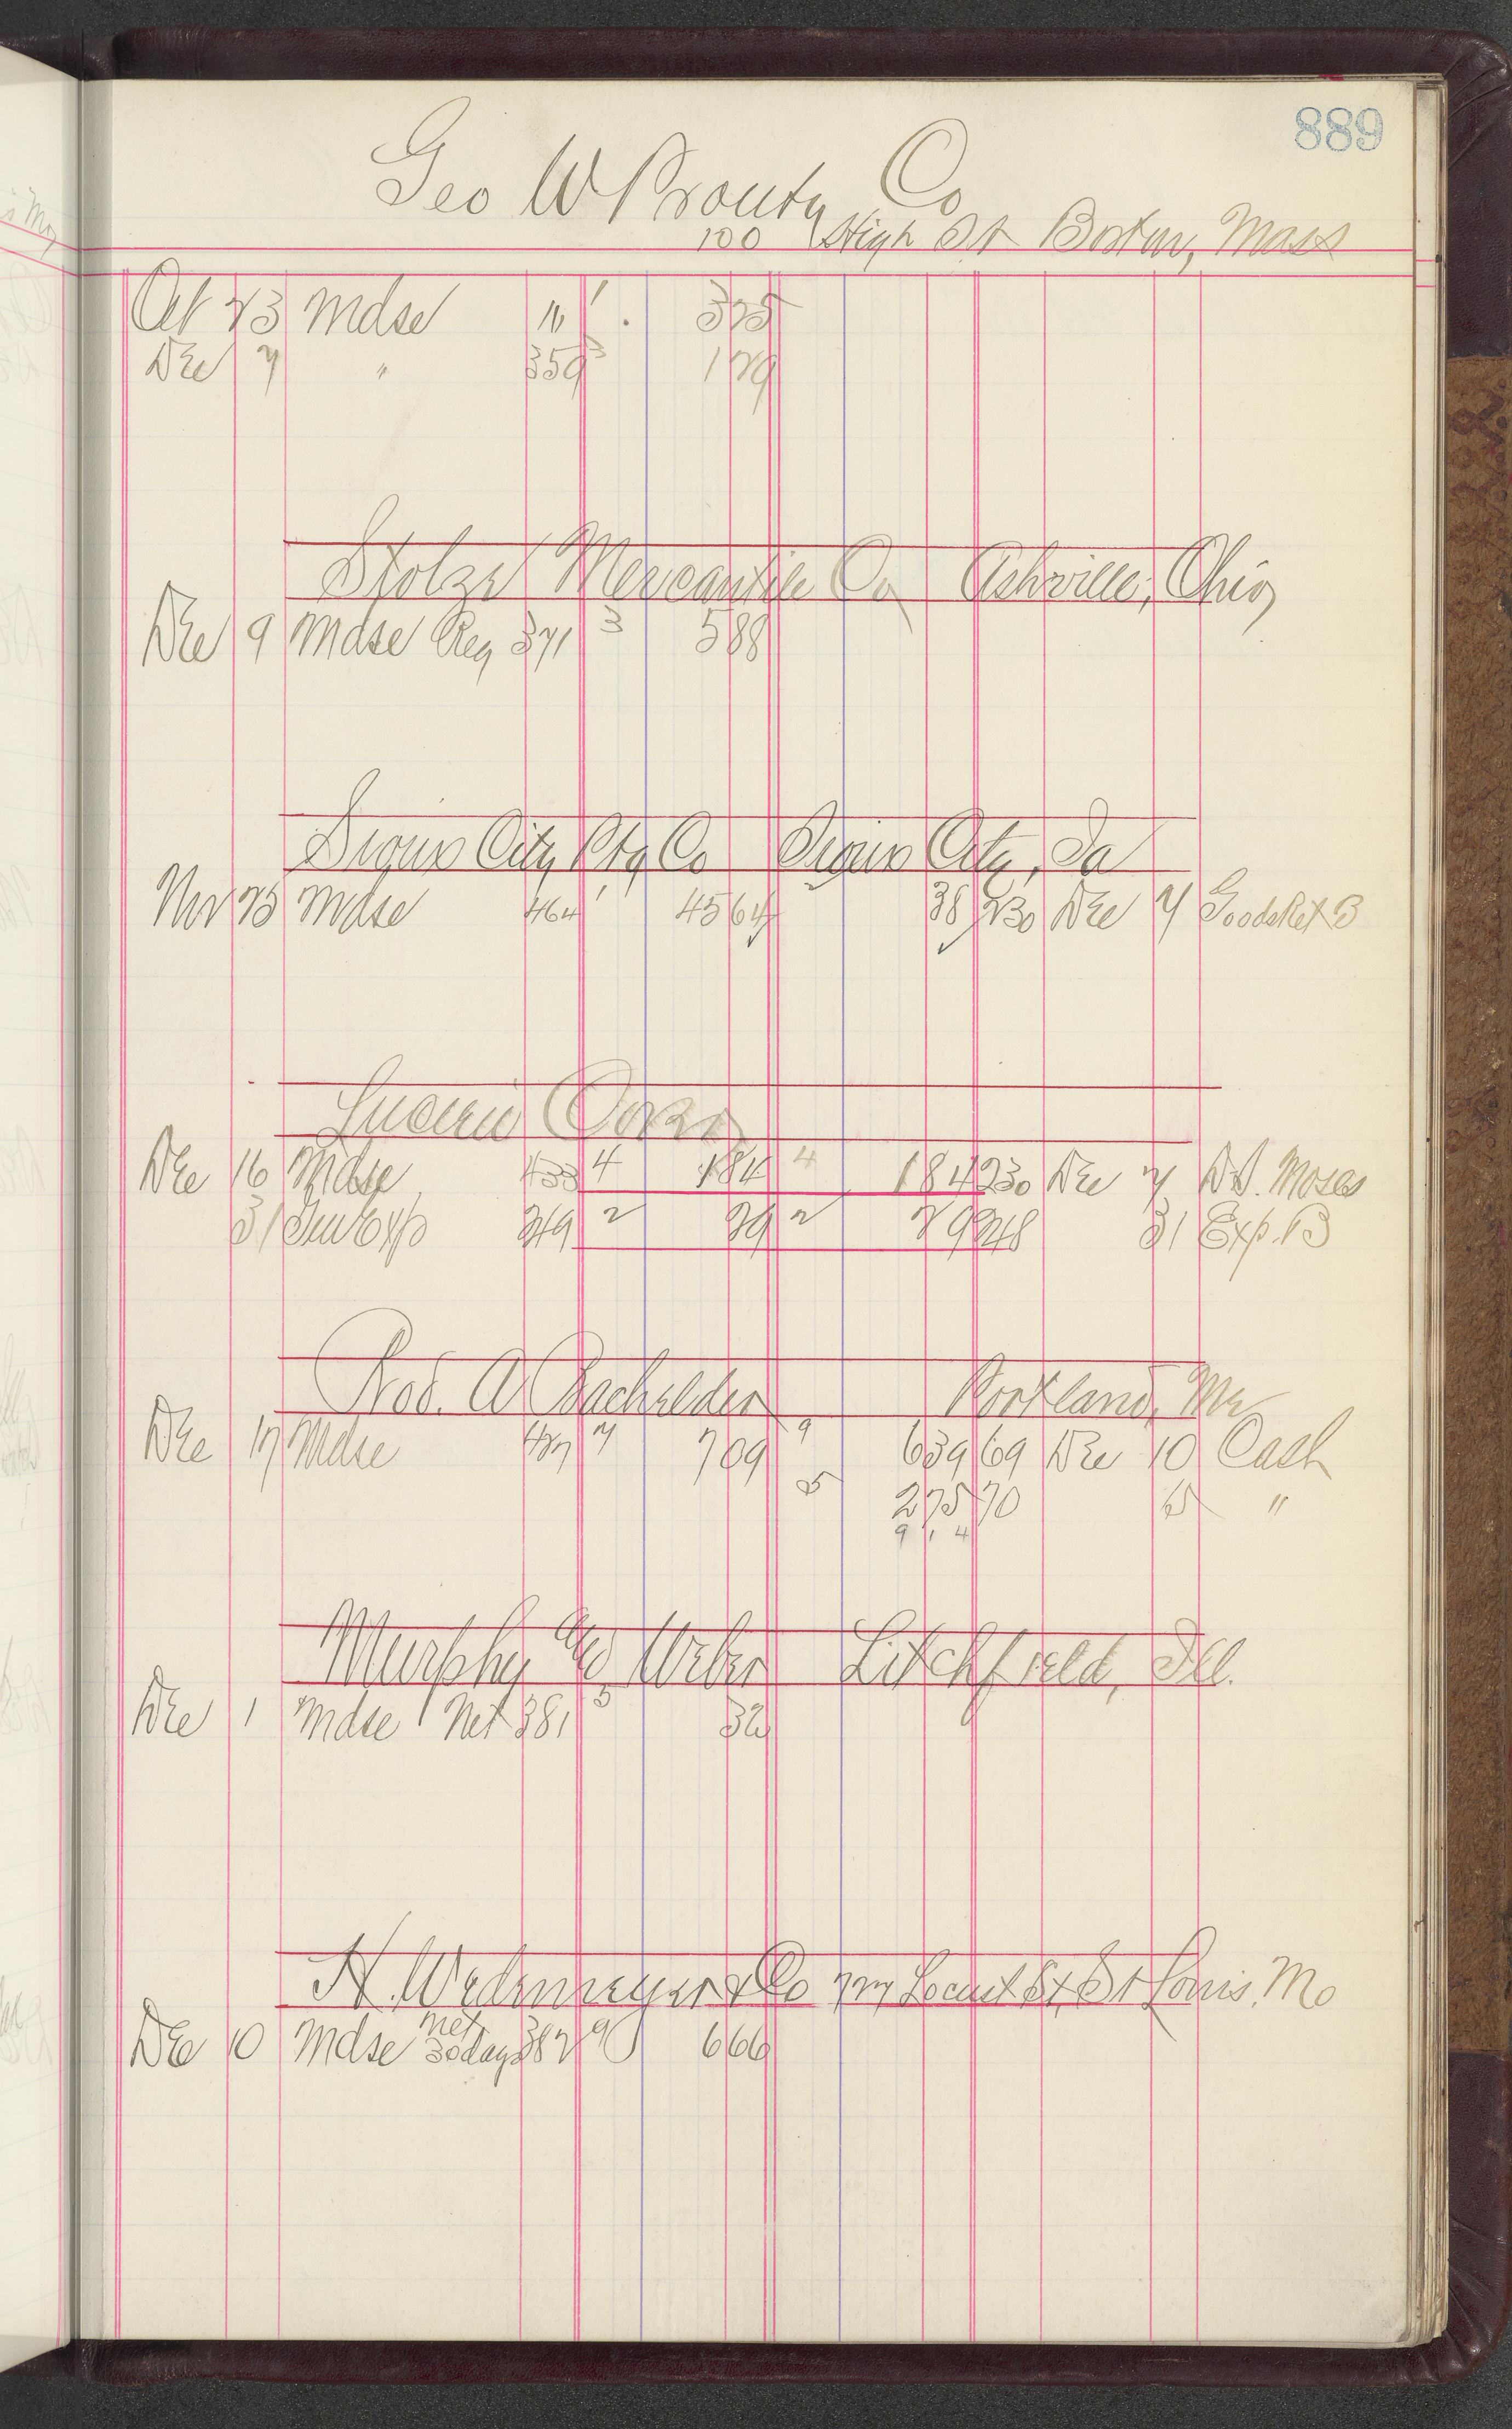 889
Geo W Prouty Co
100 High St Boston, Mass
Oct 23 Mdse 10 1 325
Dec 7 " 359 3 129
Stolze Mercantile Co Ashville, Ohio
Dec 9 Mdse Reg 371 3 588
Sioux City Ptg Co Sioux City, Ia
Nov 25 Mdse 464 1 45 64 38 230 Dec 7 Goods Ret B
Dec 16 Mdse 433 4 184 4 184 230 Dec 7 D.D. Moses
31 Exp 249 2 29 2 29 248 31 Exp. B
Rob. A Bachelder Portland, Me
Dec 17 Mdse 427 7 709 9 639 69 Dec 10 Cash
5 275 70 15 "
9 1 4
Murphy & Weber Litchfield, Ill.
Dec 1 Mdse Net 381 5 32
H. Wedemeyer & Co Locust St, St Louis, Mo
Dec 10 Mdse net 30 days 382 9 666